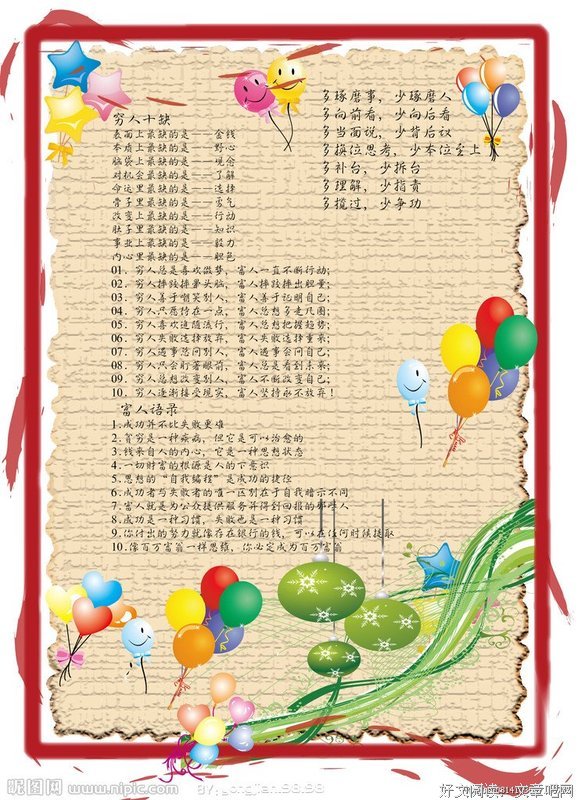 穷人十缺
表面上最缺的是——金钱
本质上最缺的是——野心
脑袋上最缺的是——观念
对机会最缺的是——了解
命运里最缺的是——选择
骨子里最缺的是——勇气
改变上最缺的是——行动
肚子里最缺的是——知识
事业上最缺的是——毅力
内心里最缺的是——胆色
多琢磨事，少琢磨人
多向前看，少向后看
多当面说，少背后议
多换位思考，少本位至上
多补台，少拆台
多理解，少指责
多揽过，少争功
01. 穷人总是喜欢做梦，富人一直不断行动；
02. 穷人摔跤摔晕头脑，富人摔跤摔出胆量；
03. 穷人善于嘲笑别人，富人善于证明自己；
04. 穷人只愿给在一点，富人总想多走几圈；
05. 穷人喜欢追随流行，富人总想把握趋势；
06. 穷人失败选择放弃，富人失败选择重来；
07. 穷人遇事总问别人，富人遇事会问自己；
08. 穷人只会盯着眼前，富人总是看到未来；
09. 穷人总想改变别人，富人不断改变自己；
10. 穷人逐渐接受现实，富人坚持永不放弃！
富人语录
1.成功并不比失败更难
2.贫穷是一种疾病，但它是可以治愈的
3.钱来自人的内心，它是一种思想状态
4.一切财富的根源是人的下意识
5.思想的“自我编程”是成功的捷径
6.成功者与失败者的唯一区别在于自我暗示不同
7.富人就是为公众提供服务并得到回报的那些人
8.成功是一种习惯，失败也是一种习惯
9.你付出的努力就像存在银行的钱，可以在任何时候提取
10.像百万富翁一样思维，你必定成为百万富翁
昵图网 www.nipic.com
BY:gongjian9898
好文阅读 文章吧网